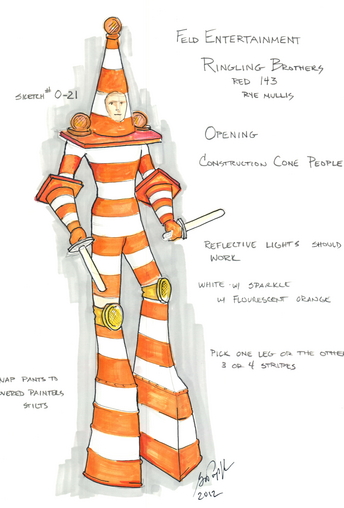 FELD ENTERTAINMENT
RINGLING BROTHERS
RED 143
RYE MULLIS
SKETCH # O-21
OPENING
CONSTRUCTION CONE PEOPLE
REFLECTIVE LIGHTS SHOULD
WORK
WHITE W/ SPARKLE
W FLOURESCENT ORANGE
PICK ONE LEG OR THE OTHER
3 OR 4 STRIPES
NAP PANTS TO
VERED PAINTERS
STILTS
2012